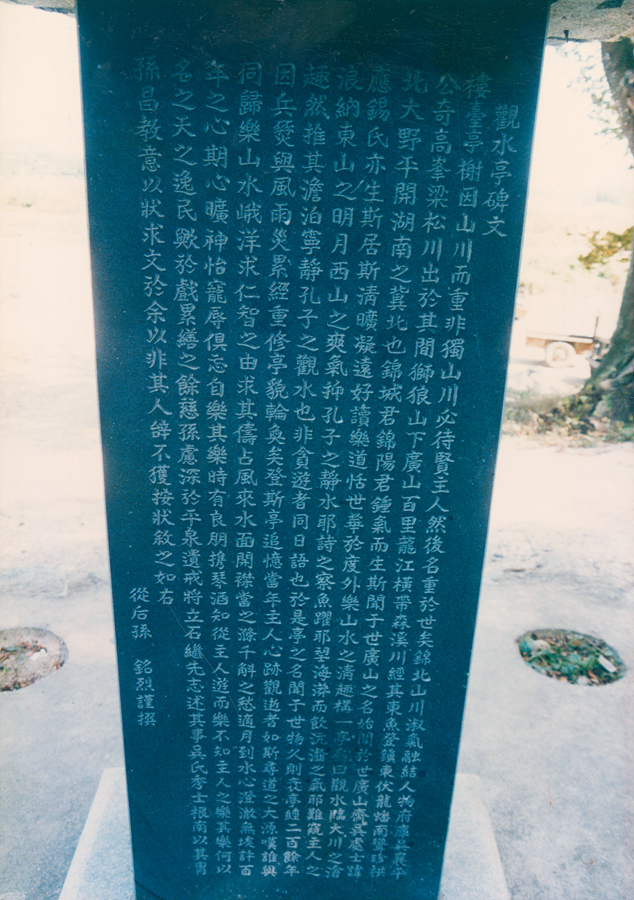 觀水亭碑文
樓臺亭榭因山川而重非獨山川必待賢主人然後名重於世矣錦北山川淑氣融結人物府庫
公奇高峯梁松川出於其間獅狼山下廣山百里龍江橫帶森溪川經其東魚登鎭東伏龍蟠南
北大野平開湖南之冀北也錦城君錦陽君鍾氣而生斯聞于世廣山之名始聞於世廣山齋處士諱
應錫氏亦生斯居斯淸曠凝遠好讀樂道恬世華於度外樂山水之淸趣構一亭曰觀水臨大川之滄
浪納東山之明月西山之爽氣抑孔子之靜水耶詩之察魚躍耶望海渤而飮之氣耶難窺主人之
趣然推其澹泊寧靜孔子之觀水也非貪遊者同日語也於是亭之名聞于世物久則亭經二百餘年
因兵燹與風雨災累經重修亭貌輪奐矣登斯亭追憶當年主人心跡觀逝者如斯尋道之大源嘆誰與
同歸樂山水峨洋求仁智之由求其儔占風來水面開襟當之滌千斛之愁適月到水心澄澈無埃許百
年之心期心曠神怡寵辱俱忘自樂其樂時有良朋携琴酒知從主人遊而樂不知主人之樂其樂何以
名之天之逸民歟於戲累繕之餘慈孫慮深於平泉遺戒將立石繼先志述其事吳氏秀士根南以其胄
孫昌敎意以狀求文於余以非其人辭不獲按狀敘之如右
從后孫 銘烈謹撰